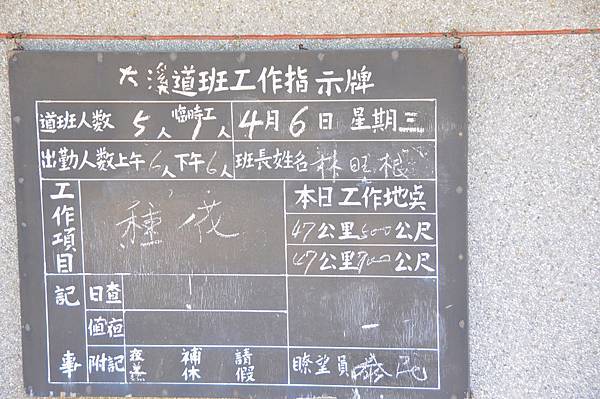 大溪道班工作指示牌
道班人数 5人 臨時工 1人 4月6日 星期三
出勤人数上午6人下午6人 班長姓名 林旺根
工作項目 種花 本日工作地點
47公里500公尺
47公里700公尺
記事 日查
值宿
附記 補休 請假 瞭望員